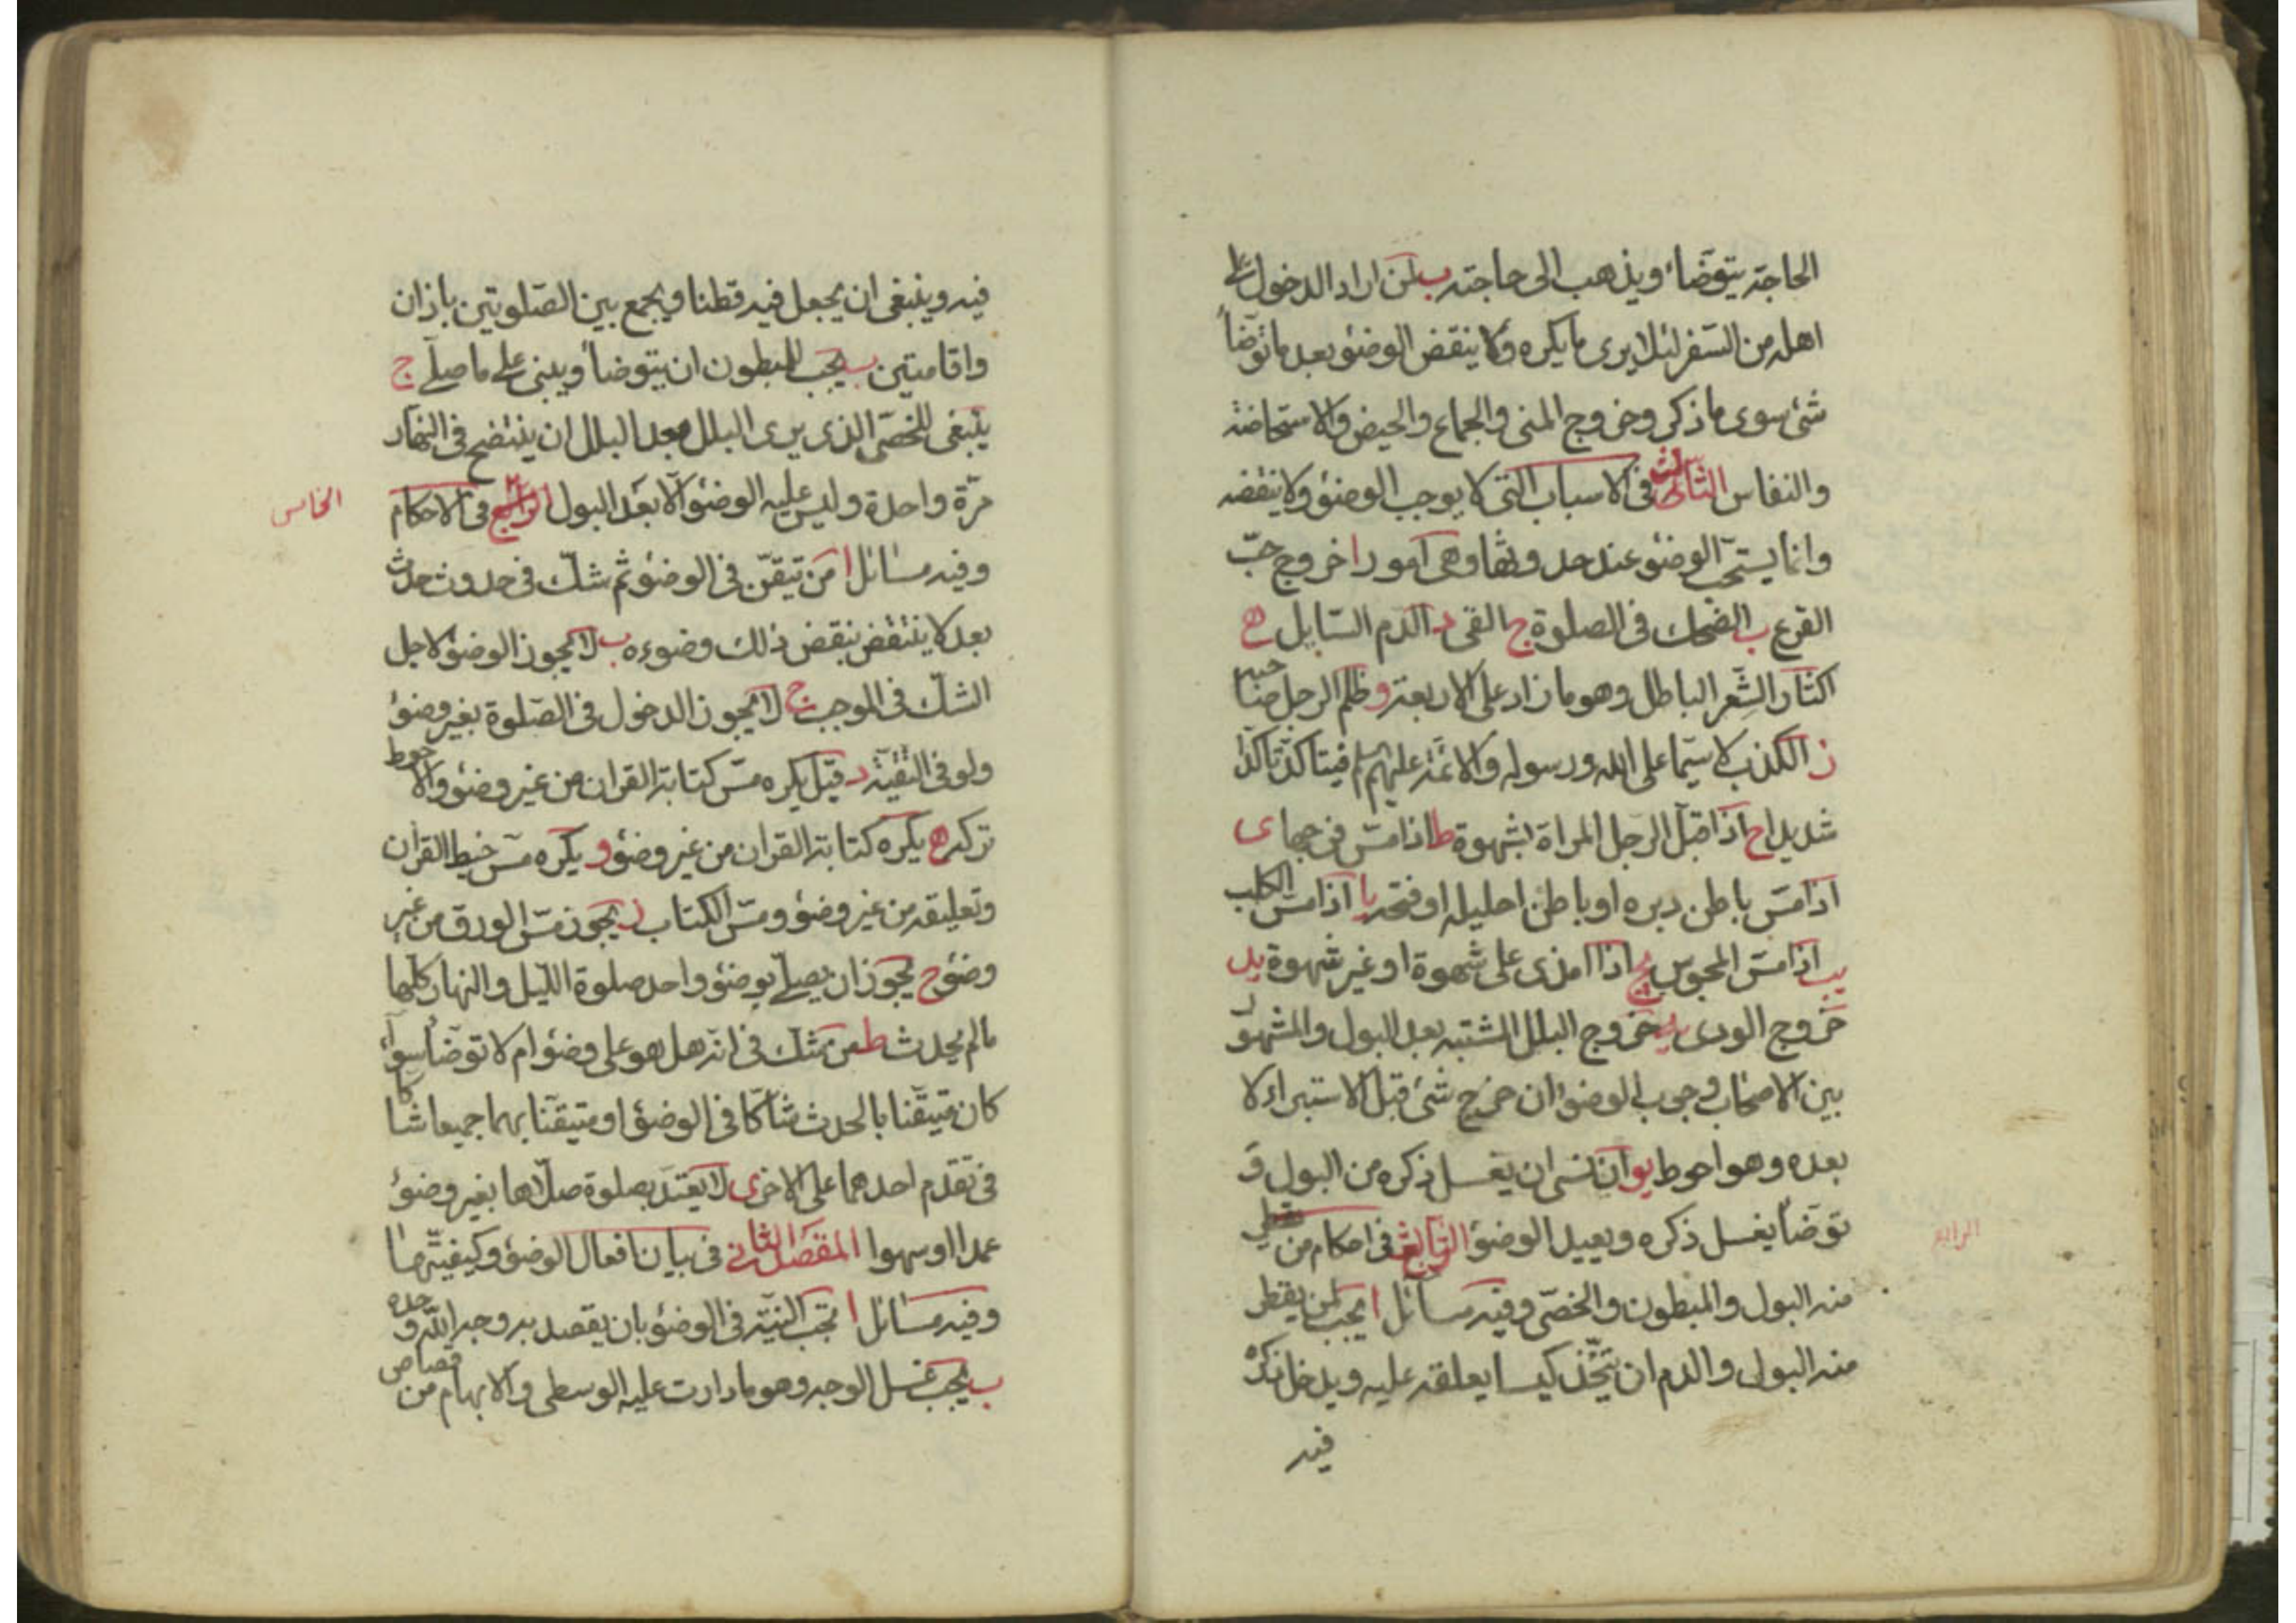 الحاجة يتوضأ ويذهب الى حاجته ب لمن اراد الدخول على
اهله من السفر لئلا يرى ما يكره ولا ينقض الوضوء بعد ما توضأ
شئ سوى ما ذكر وخروج المنى والجماع والحيض والاستحاضة
والنفاس الثالث فى الاسباب التى لا يوجب الوضوء ولا ينقضه
وانما يستحب الوضوء عند حدوثها وهى امور ا خروج حبّ
القرع ب الضحك فى الصلوة ج القى د الدم السايل ه
اكثار الشعر الباطل وهو ما زاد على الاربعة و ظلم الرجل صاحبه
ز الكذب لا سيّما على الله ورسوله والائمة عليهم السلم فيتاكد تاكدا
شديدا ح اذا قبّل الرجل المراة بشهوة ط اذا مسّ فرجها ى
اذا مسّ باطن دبره او باطن احليله او فتحه يا اذا مسّ الكلب
يب اذا مسّ المجوس يج اذا امذى على شهوة او غير شهوة يد
خروج الودى يه خروج البلل المشتبه بعد البول والمشهور
بين الاصحاب وجوب الوضوء ان خرج شئ قبل الاستبراء لا
بعده وهو احوط يو ان نسى ان يغسل ذكره من البول و
توضأ يغسل ذكره ويعيد الوضوء الرابع فى احكام من يقطر
الرابع
منه البول والمبطون والخصّى وفيه مسائل ا يجب لمن يقطر
منه البول والدم ان يتّخذ كيسا يعلقه عليه ويدخل ذكره
فيه
فيه وينبغى ان يجعل فيه قطنا ويجمع بين الصّلوتين باذان
واقامتين ب يجب للمبطون ان يتوضأ ويبنى على ما صلّى ج
ينبغى للخصّى الذى يرى البلل بعد البلل ان ينتضح فى النهار
مرّة واحدة وليس عليه الوضوء الّا بعد البول الرابع فى الاحكام
الخامس
وفيه مسائل ا من تيقّن فى الوضوء ثم شكّ فى حدوث حدث
بعد لا ينتقض بنقض ذلك وضوءه ب لا يجوز الوضوء لاجل
الشكّ فى الموجب ج لا يجوز الدخول فى الصّلوة بغير وضوء
ولو فى التقيّة د قيل يكره مسّ كتابة القران من غير وضوء والاحوط
تركه ه يكره كتابة القران من غير وضوء و يكره مسّ خيط القران
وتعليقه من غير وضوء ومسّ الكتاب ز يجوز مسّ الورق من غير
وضوء ح يجوز ان يصلّى بوضوء واحد صلوة الليل والنهار كلّها
ما لم يحدث ط من شك فى انه هل هو على وضوء ام لا توضأ سواء
كان متيقّنا بالحدث شاكّا فى الوضوء او متيقنا بهما جميعا شاكا
فى تقدم احدهما على الاخر ى لا يعتدّ بصلوة صلّاها بغير وضوء
عمدا او سهوا المقصد الثانى فى بيان افعال الوضوء وكيفيّتها
وفيه مسائل ا تجب النيّة فى الوضوء بان يقصد به وجه الله وحده
ب يجب غسل الوجه وهو ما دارت عليه الوسطى والابهام من قصاص